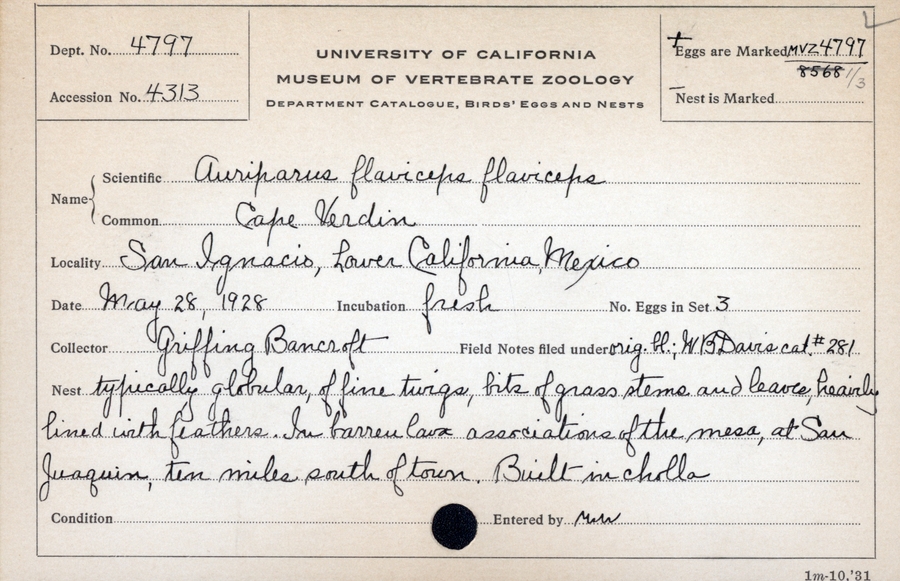 Dept. No. 4797
Accession No. 4313
UNIVERSITY OF CALIFORNIA
MUSEUM OF VERTEBRATE ZOOLOGY
DEPARTMENT CATALOGUE, BIRDS' EGGS AND NESTS
+ Eggs are Marked MVZ 4797
8568 1/3
– Nest is Marked
Name
Scientific Auriparus flaviceps flaviceps
Common Cape Verdin
Locality San Ignacio, Lower California, Mexico
Date May 28, 1928 Incubation fresh No. Eggs in Set 3
Collector Griffing Bancroft Field Notes filed under orig. bl.; WB Davis cat. # 281
Nest typically globular, of fine twigs, bits of grass stems and leaves, heavily
lined with feathers. In barren lava associations of the mesa, at San
Juaquin, ten miles south of town. Built in cholla
Condition Entered by
1m-10,'31